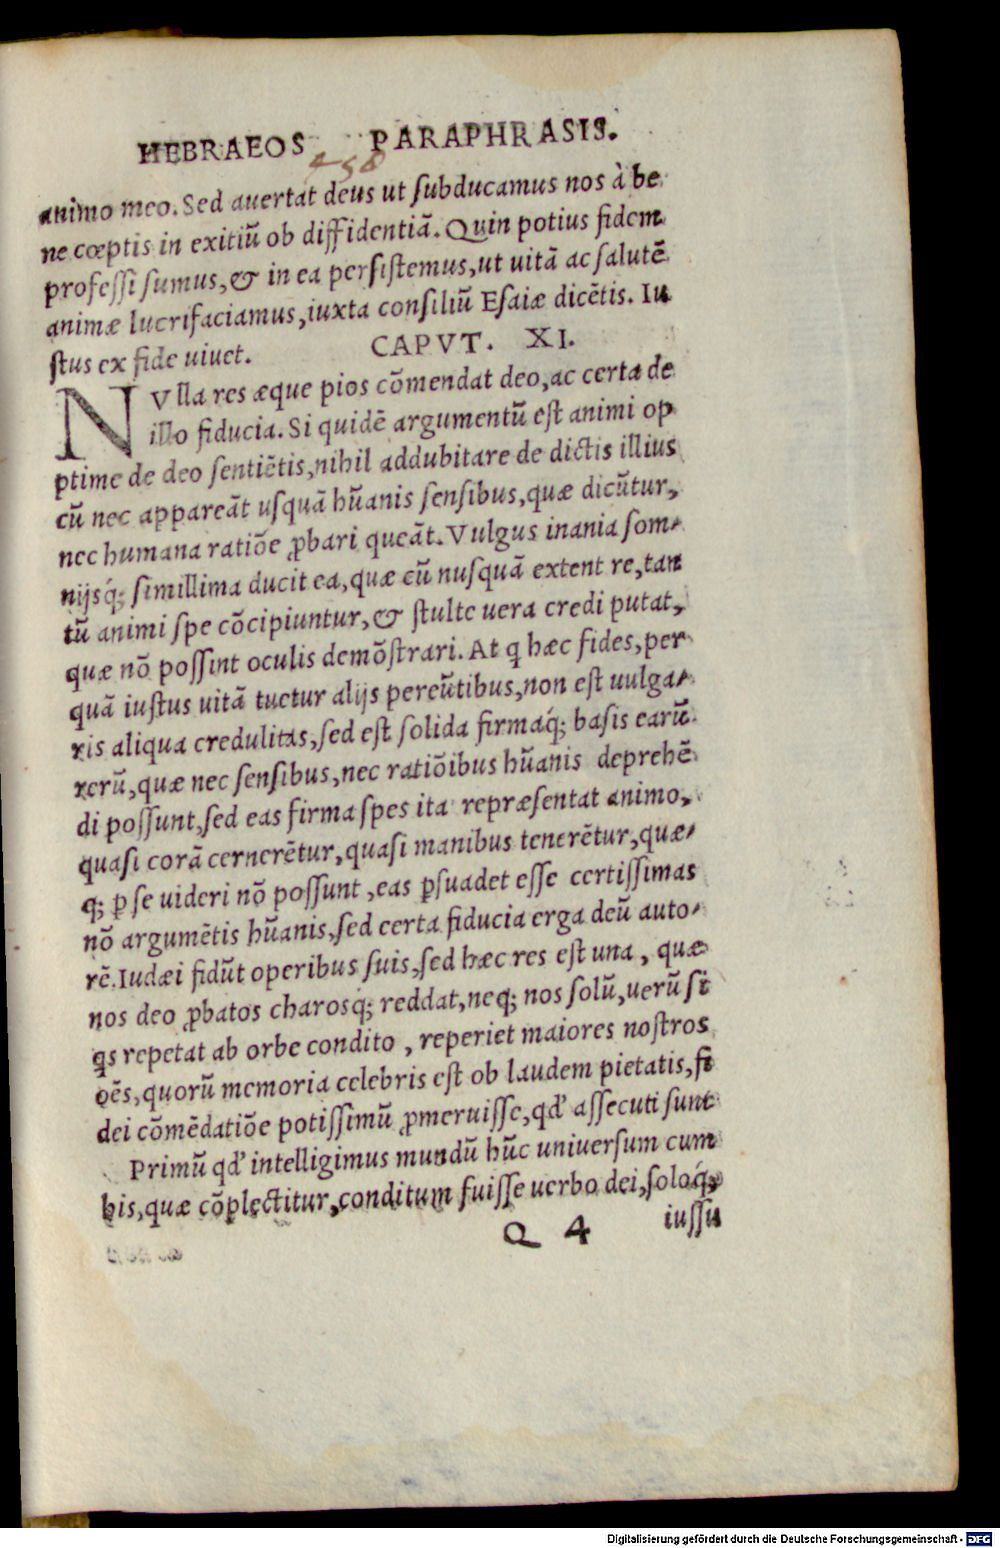 HEBRAEOS PARAPHRASIS.
458
animo meo. Sed auertat deus ut subducamus nos à be
ne cœptis in exitiũ ob diffidentiã. Quin potius fidem
professi sumus, & in ea persistemus, ut uitã ac salutẽ
animæ lucrifaciamus, iuxta consiliũ Esaiæ dicẽtis. Iu
stus ex fide uiuet. CAPVT. XI.
NVlla res æque pios cõmendat deo, ac certa de
illo fiducia. Si quidẽ argumentũ est animi op
ptime de deo sentiẽtis, nihil addubitare de dictis illius
cũ nec appareãt usquã hũanis sensibus, quæ dicũtur,
nec humana ratiõe ꝓbari queãt. Vulgus inania som⸗
nijsq́; simillima ducit ea, quæ cũ nusquã extent re, tan
tũ animi spe cõcipiuntur, & stulte uera credi putat,
quæ nõ possint oculis demõstrari. At q hæc fides, per
quã iustus uitã tuetur alijs pereũtibus, non est uulga⸗
ris aliqua credulitas, sed est solida firmaq́; basis earũ
rerũ, quæ nec sensibus, nec ratiõibus hũanis deprehẽ
di possunt, sed eas firma spes ita repræsentat animo,
quasi corã cernerẽtur, quasi manibus tenerẽtur, quæ⸗
q; ꝑ se uideri nõ possunt, eas ꝑsuadet esse certissimas
nõ argumẽtis hũanis, sed certa fiducia erga deũ auto⸗
rẽ. Iudæi fidũt operibus suis, sed hæc res est una, quæ
nos deo ꝓbatos charosq́; reddat, neq; nos solũ, uerũ si
qs repetat ab orbe condito, reperiet maiores nostros
oẽs, quorũ memoria celebris est ob laudem pietatis, fi
dei cõmẽdatiõe potissimũ ꝓmeruisse, qď assecuti sunt
Primũ qď intelligimus mundũ hũc uniuersum cum
his, quæ cõplectitur, conditum fuisse uerbo dei, soloq́;
Q 4 iussu
Digitalisierung gefördert durch die Deutsche Forschungsgemeinschaft - DFG